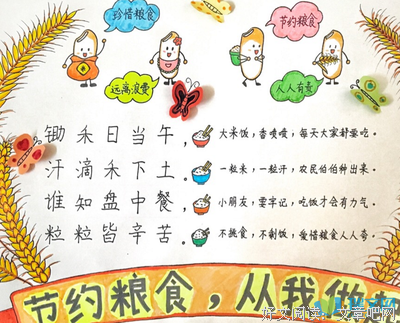 珍惜粮食
节约粮食
远离浪费
人人有责
锄禾日当午，
大米饭，香喷喷，每天大家都要吃。
汗滴禾下土。
一粒米，一粒汗，农民伯伯种出来。
谁知盘中餐，
小朋友，要牢记，吃饭才会有力气。
粒粒皆辛苦。
不挑食，不剩饭，爱惜粮食人人夸。
节约粮食，从我做
好文阅读－文章吧网